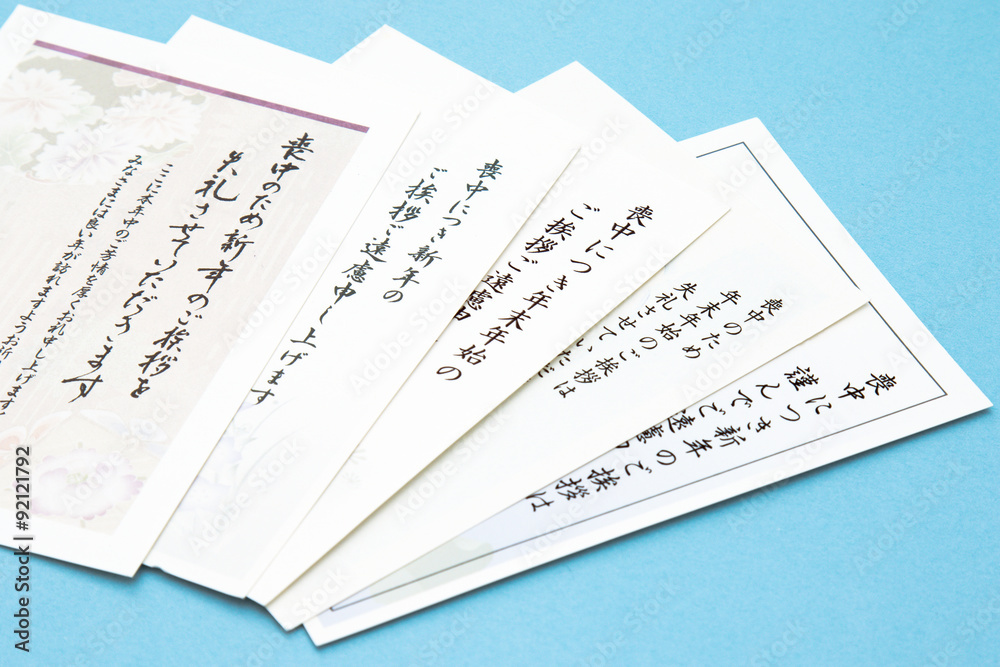 喪中のため新年のご挨拶を
失礼させていただきます
ここに本年中のご芳情を厚くお礼申し上げます
みなさまには良い年が訪れますようお祈り
喪中につき新年の
ご挨拶ご遠慮申し上げます
喪中につき年末年始の
ご挨拶ご遠慮申
喪中のため
年末年始のご挨拶は
失礼させていただ
喪中につき新年のご挨拶は
謹んでご遠慮
Adobe Stock | #92121792